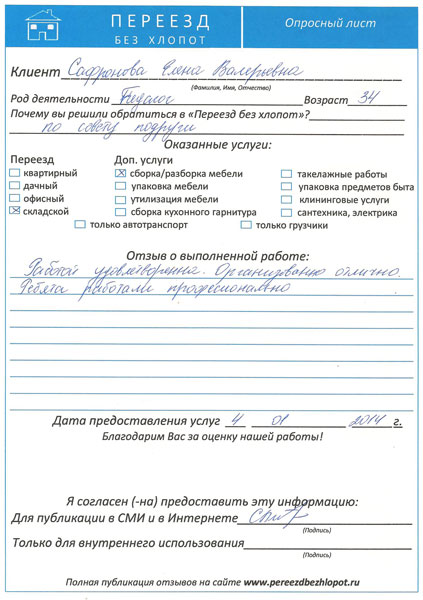 ПЕРЕЕЗД
БЕЗ ХЛОПОТ
Опросный лист
Клиент Сафронова Елена Валерьевна
(Фамилия, Имя, Отчество)
Род деятельности Педагог Возраст 34
Почему вы решили обратиться в «Переезд без хлопот»?
по совету подруги
Оказанные услуги:
Переезд Доп. услуги
квартирный сборка/разборка мебели такелажные работы
дачный упаковка мебели упаковка предметов быта
офисный утилизация мебели клининговые услуги
складской сборка кухонного гарнитура сантехника, электрика
только автотранспорт только грузчики
Отзыв о выполненной работе:
Работой удовлетворенна. Организованно отлично.
Ребята работали професионально
Дата предоставления услуг 4 01 2014 г.
Благодарим Вас за оценку нашей работы!
Я согласен (-на) предоставить эту информацию:
Для публикации в СМИ и в Интернете
(Подпись)
Только для внутреннего использования
(Подпись)
Полная публикация отзывов на сайте www.pereezdbezhlopot.ru